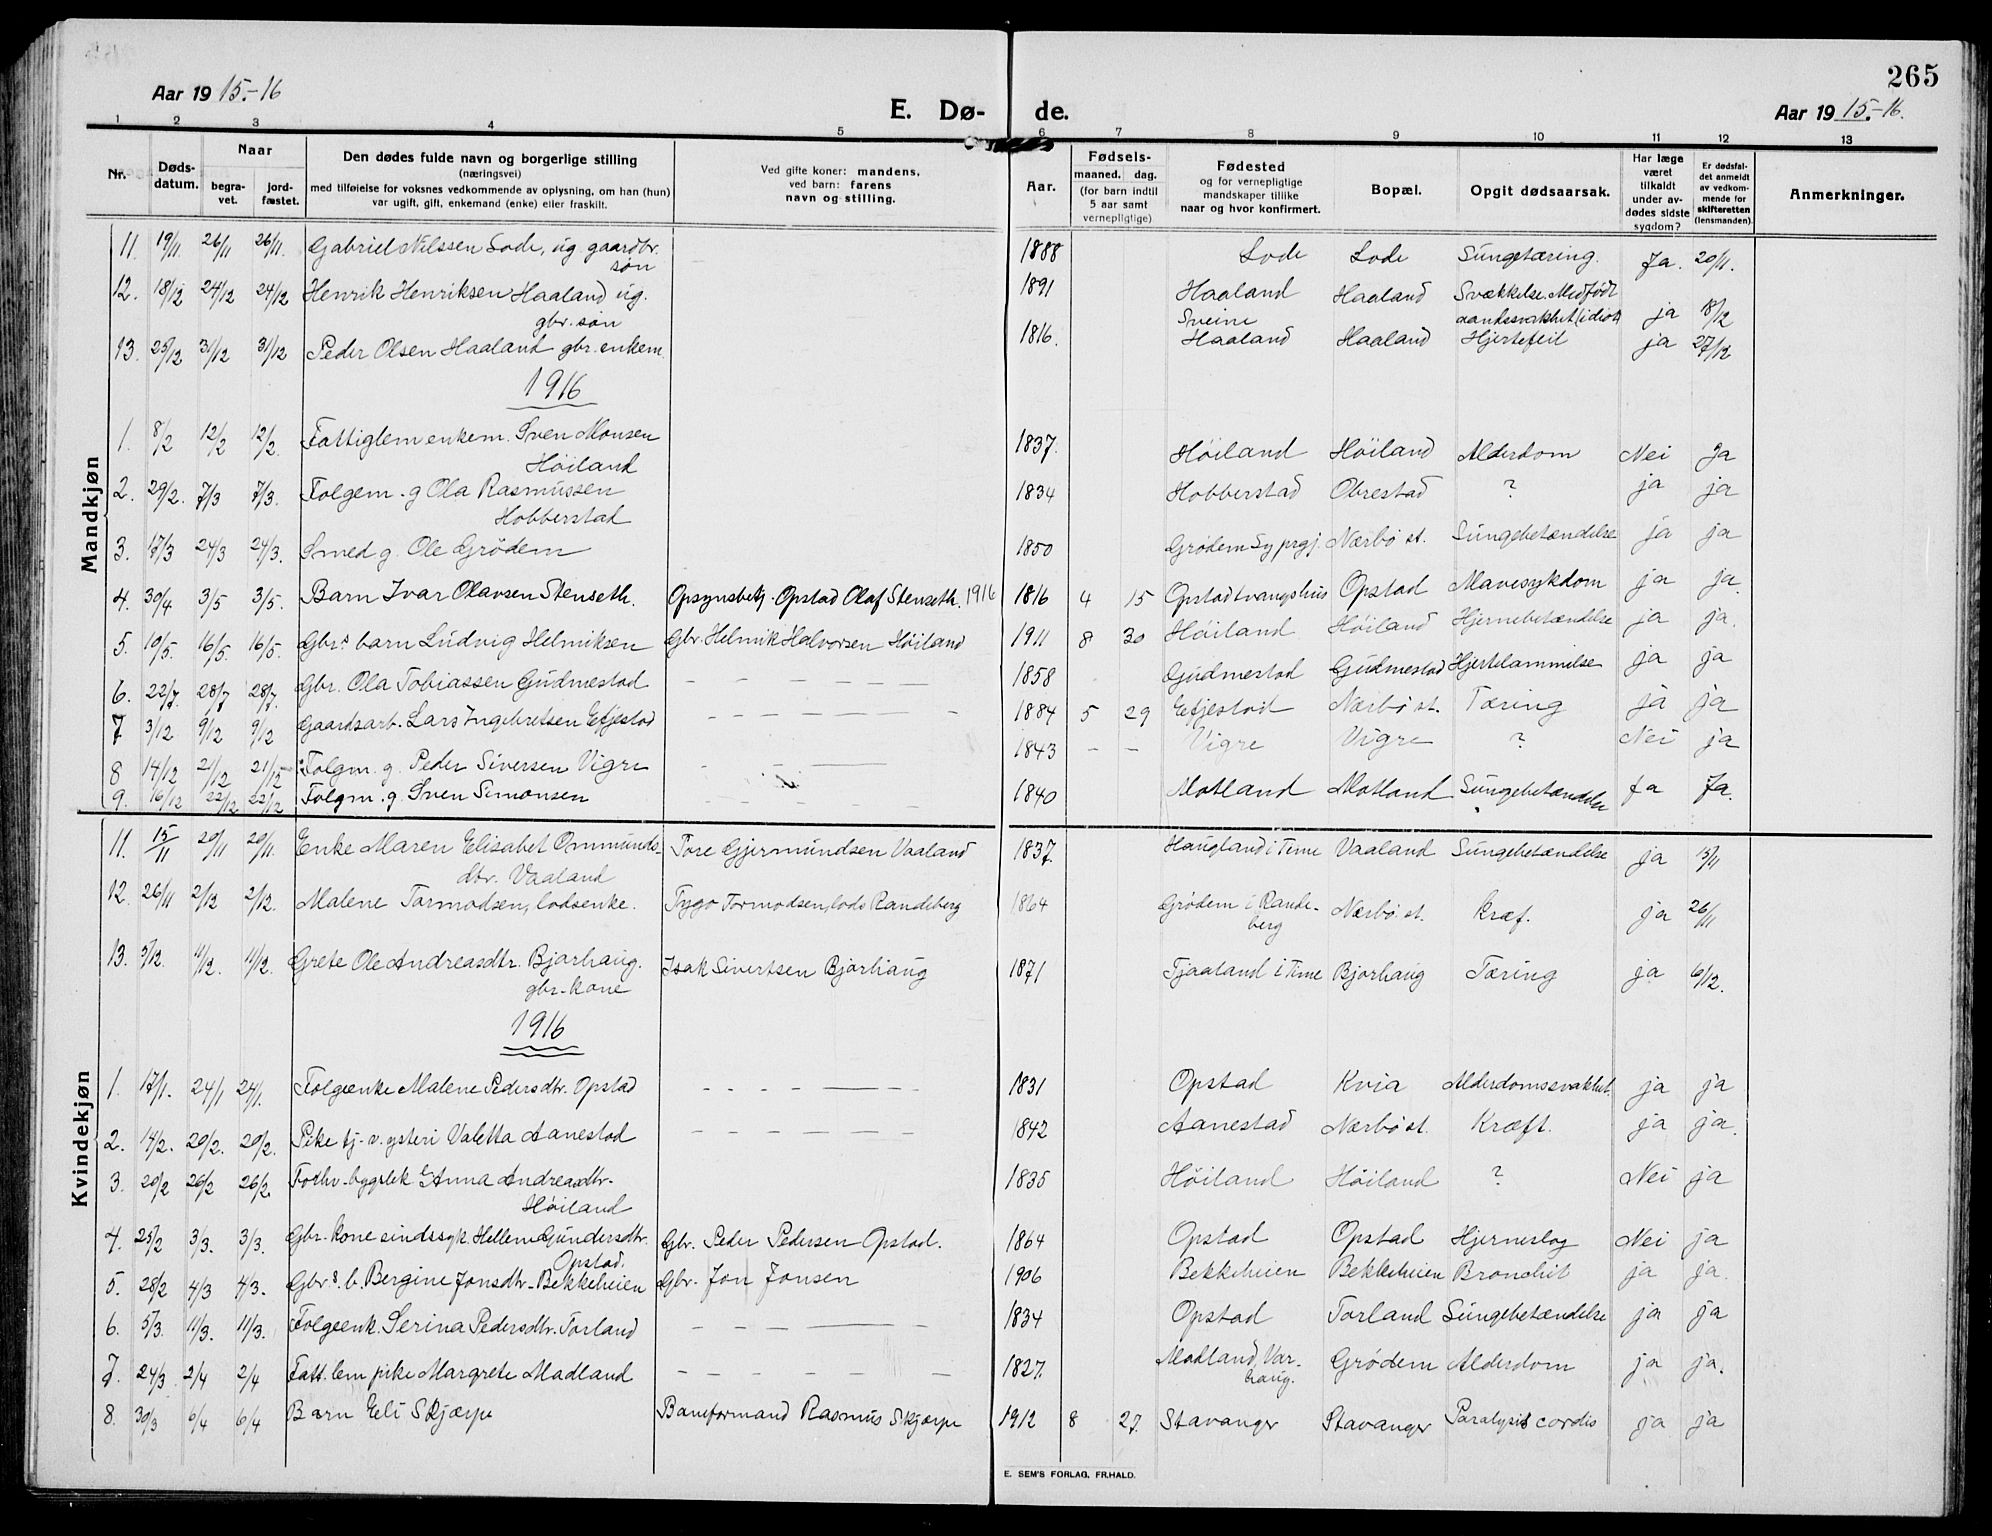 265
Aar 19 15.-16
E. Dø- de.
Aar 19 15.-16.
1 2 3 4 5 6 7 8 9 10 11 12 13
Nr.
Døds-
datum.
Naar
begra-
vet.
jord-
fæstet.
Den dødes fulde navn og borgerlige stilling
(næringsvei)
med tilføielse for voksnes vedkommende av oplysning, om han (hun)
var ugift, gift, enkemand (enke) eller fraskilt.
Ved gifte koner: mandens,
ved barn: farens
navn og stilling.
Aar.
Fødsels-
maaned. dag.
(for barn indtil
5 aar samt
vernepligtige)
Fødested
og for vernepligtige
mandskaper tillike
naar og hvor konfirmert.
Bopæl.
Opgit dødsaarsak.
Har læge
været
tilkaldt
under av-
dødes sidste
sygdom?
Er dødsfal-
det anmeldt
av vedkom-
mende for
skifteretten
(lensmanden).
Anmerkninger.
Mandkjøn
11. 19/11 26/11 26/11. Gabriel Nilssen Lode, ug gaardbr. 1888 Lode Lode Lungetæring. Ja. 20/11.
søn
12. 18/12 24/12 24/12 Henrik Henriksen Haaland ug. 1891 Haaland Haaland Svækkelse. Medfødt
gbr. søn Sveine aandssvakhet (idiot) ja 18/12
13. 25/12 31/12 31/12 Peder Olsen Haaland gbr. enkem. 1816. Haaland Haaland Hjertefeil ja 27/12
1916
1. 8/2 12/2 12/2. Fattiglem enkem. Sven Monsen 1837. Høiland Høiland Alderdom Nei Ja
Høiland
2. 29/2. 7/3 7/3. Folgem. g Ola Rasmussen 1834 Hobberstad Obrestad ? ja ja
Hobberstad
3. 17/3 24/3 24/3. Smed g. Ole Grödem 1850 Grödem Sy prgj. Nærbö st. Lungebetændelse ja ja
4. 30/4 3/5 3/5. Barn Ivar Olavsen Stenseth. Opsynsbetj. Opstad Olaf Stenseth. 1916 1816 4 15 Opstad tvangshus Opstad Mavesykdom ja ja.
5. 10/5. 16/5. 16/5. Gbr.s barn Ludvig Helmiksen Gbr. Helmik Halvorsen Höiland 1911 8 30 Höiland Höiland Hjernebetændelse ja ja.
6. 22/7. 28/7 28/7. Gbr. Ola Tobiassen Gudmestad 1858 Gudmestad Gudmestad Hjertelammelse ja ja
7 3/12 9/12 9/12 Gaardsarb. Lars Ingebretsen Etjestad 1884 5 29 Etjestad Nærbö st. Tæring ja ja
8 14/12 21/12 21/12 Folgm. g. Peder Siversen Vigre 1843 Vigre Vigre ? Nei ja
9. 16/12 22/12 22/12 Folgm. g. Sven Simonsen 1840 Motland Motland Lungebetændelse ja Ja.
Kvindekjøn
11. 15/11 20/11 20/11. Enke Maren Elisabet Ommunds- Tore Gjermundsen Vaaland 1837. Haugland i Time Vaaland Lungebetændelse ja 15/11
dtr. Vaaland
12. 26/11 2/12 2/12. Malene Tormodsen, lodsenke. Tygo Tormodsen, lods Randeberg 1864 Grödem i Rande- Nærbö st. Kræf. ja 26/11
berg
13. 5/12. 11/12. 11/12. Grete Ole Andreasdtr. Bjorhaug. Isak Sivertsen Bjorhaug 1871 Tjaaland i Time Bjorhaug Tæring ja 6/12.
gbr. kone
1916
1. 17/1. 24/1 24/1. Folgeenke Malene Pedersdtr. Opstad 1831 Opstad Kvia Alderdomssvakhet. ja ja
2. 14/2. 20/2. 20/2. Pike tj. v. ysteri Valetta Aanestad 1842 Aanestad Nærbö st. Kræft. ja ja.
3. 20/2 26/2 26/2. Forhv. bygslek. E Anna Andreasdtr. 1835 Höiland Höiland ? Nei ja
Höiland
4. 25/2 3/3. 3/3. Gbr. kone sindssyk. Hellene Gundersdtr. Gbr. Peder Pedersen Opstad. 1864 Opstad Opstad Hjerneslag Nei ja
Opstad.
5. 28/2 4/3 4/3. Gbr s. b. Bergine Jonsdtr. Bekkeheien Gbr. Jon Jonsen 1906 Bekkeheien Bekkeheien Bronchit ja ja.
6. 5/3. 11/3. 11/3. Folgeenk. Serina Pedersdtr. Torland 1834 Opstad Torland Lungebetændelse ja ja
7. 24/3 2/4 2/4 Fatt. lem pike Margrete Madland 1827. Madland, Var- Grödem Alderdom ja ja.
haug.
8. 30/3 6/4 6/4 Barn Eli Skjærpe Baneformand Rasmus Skjærpe 1912 8 27. Stavanger Stavanger Paralysis cordis ja ja
E. SEM'S FORLAG, FR.HALD.